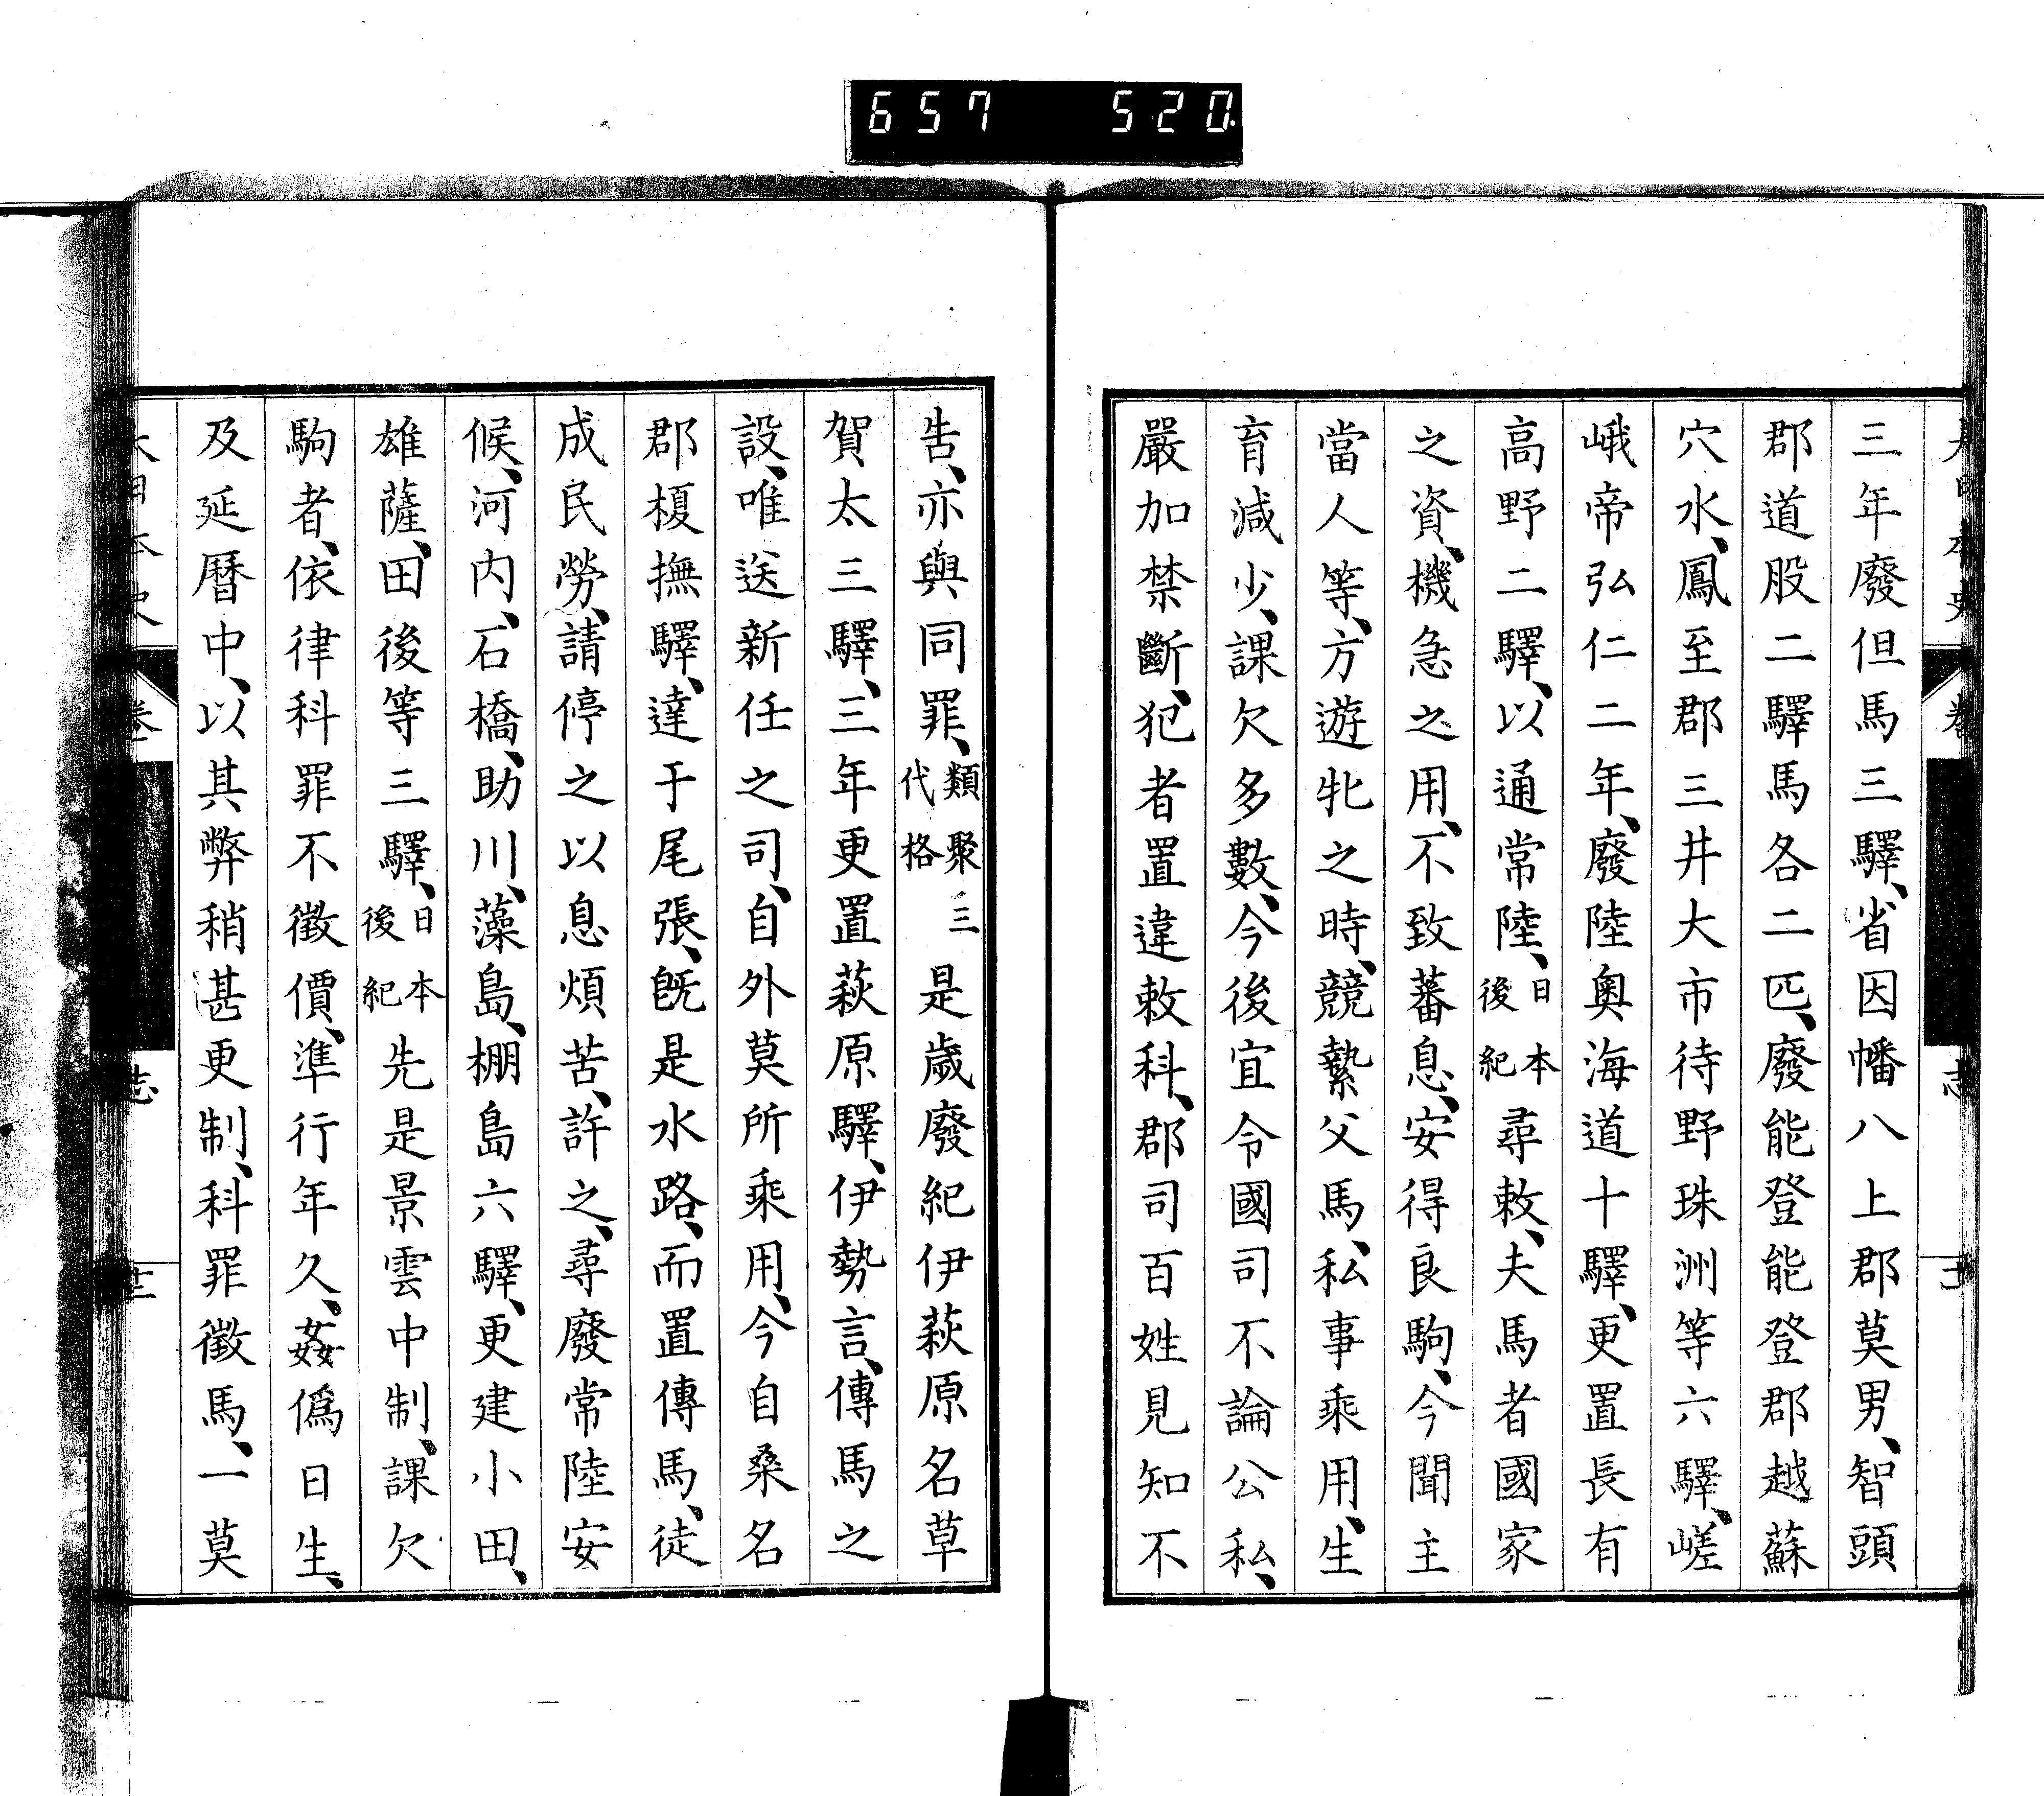 657 520
三年廢但馬三驛、省因幡八上郡莫男、智頭
郡道股二驛馬各二匹、廢能登能登郡越蘇
穴水、鳳至郡三井大市待野珠洲等六驛、嵯
峨帝弘仁二年、廢陸奧海道十驛、更置長有
高野二驛、以通常陸、日本後紀尋敕、夫馬者國家
之資、機急之用、不致蕃息、安得良駒、今聞主
當人等、方遊牝之時、競縶父馬、私事乘用、生
育減少、課欠多數、今後宜令國司不論公私、
嚴加禁斷、犯者置違敕科、郡司百姓見知不
告、亦與同罪、類聚三代格是歲廢紀伊萩原名草
賀太三驛、三年更置萩原驛、伊勢言、傳馬之
設、唯送新任之司、自外莫所乘用、今自桑名
郡榎撫驛、達于尾張、既是水路、而置傳馬、徒
成民勞、請停之以息煩苦、許之、尋廢常陸安
候、河內、石橋、助川、藻島、棚島六驛、更建小田、
雄薩、田後等三驛、日本後紀先是景雲中制、課欠
駒者、依律科罪不徵價、準行年久、姦僞日生、
及延曆中、以其弊稍甚更制、科罪徵馬、一莫
大日本史 卷 志